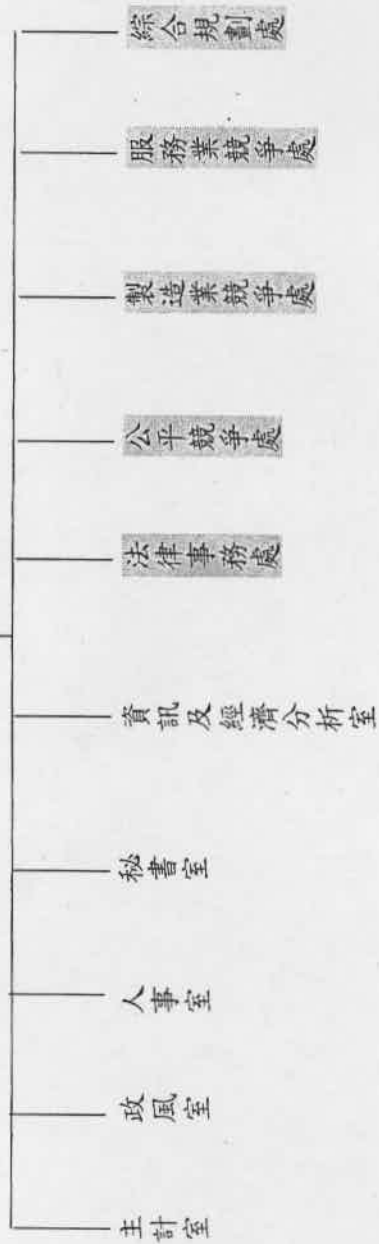 綜合規劃處
服務業競爭處
製造業競爭處
公平競爭處
法律事務處
資訊及經濟分析室
秘書室
人事室
政風室
主計室